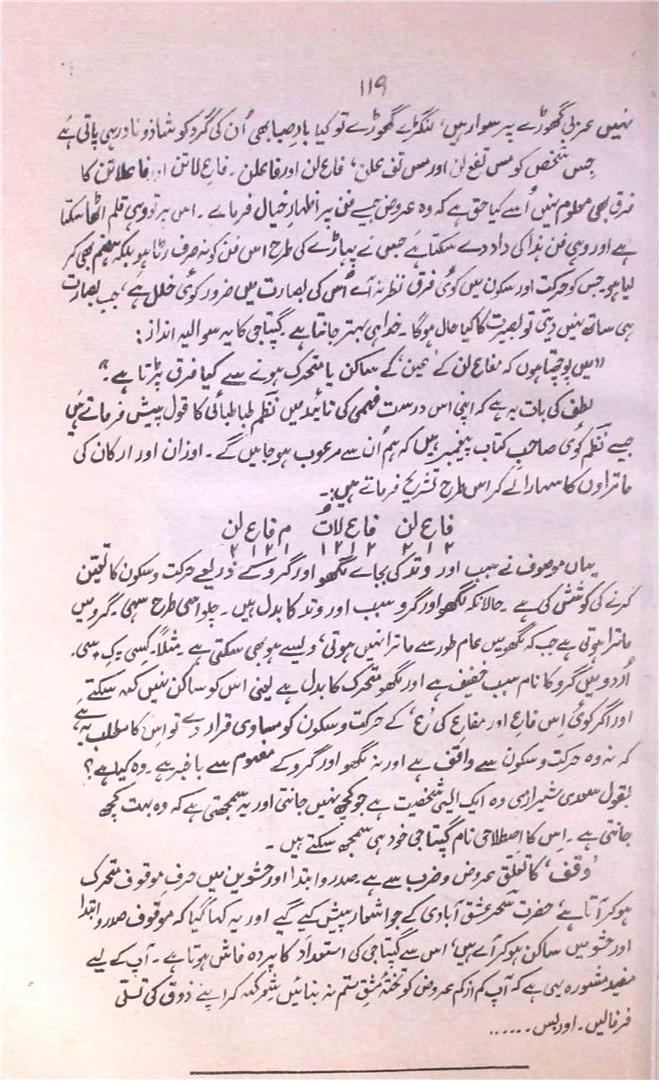 ۱۱۹
نہیں عربی گھوڑے پر سوار ہیں، لنگڑے گھوڑے تو کیا بادِ صبا بھی اُن کی گرد کو شاذ و نادر ہی پاتی ہے
جس شخص کو مس تفع لن اور مس تف علن، فاع لن اور فاعلن۔ فاع لاتن اور فاعلاتن کا
فرق بھی معلوم نہیں اُسے کیا حق ہے کہ وہ عروض جیسے فن پر اظہارِ خیال فرمائے۔ اس پر تو وہی قلم اٹھا سکتا
ہے اور وہی فن ہذا کی داد دے سکتا ہے جس نے پہاڑے کی طرح اس فن کو نہ صرف رٹا ہو بلکہ ہضم بھی کر
لیا ہو جس کو حرکت اور سکون میں کوئی فرق نظر نہ آئے اُس کی بصارت میں ضرور کوئی خلل ہے، جب بصارت
ہی ساتھ نہیں دیتی تو بصیرت کا کیا حال ہوگا۔ خدا ہی بہتر جانتا ہے۔ گپتا جی کا یہ سوالیہ انداز:
"میں پوچھتا ہوں کہ مفاع لن کے 'عین' کے ساکن یا متحرک ہونے سے کیا فرق پڑتا ہے۔"
لطف کی بات یہ ہے کہ اپنی اس درست فہمی کی تائید میں نظم طباطبائی کا قول پیش فرماتے ہیں
جیسے نظم کوئی صاحبِ کتاب پیغمبر ہیں کہ ہم اُن سے مرعوب ہو جائیں گے۔ اوزان اور ارکان کی
ماتراؤں کا سہارا لے کر اس طرح تشریح فرماتے ہیں:۔
فاع لن فاع لاتُ م فاع لن
۲ ۱ ۲ ۲ ۱ ۲ ۱ ۱ ۲ ۱ ۲
یہاں موصوف نے سبب اور وتد کی بجائے لگھو اور گرو کے ذریعے حرکت و سکون کا تعین
کرنے کی کوشش کی ہے۔ حالانکہ لگھو اور گرو سبب اور وتد کا بدل ہیں۔ چلو اسی طرح سہی۔ گرو میں
ماترا ہوتی ہے جب کہ لگھو میں عام طور سے ماترا نہیں ہوتی، ویسے ہو بھی سکتی ہے۔ مثلاً۔ کیسی
اُردو میں گرو کا نام سبب خفیف ہے اور لگھو متحرک کا بدل ہے یعنی اس کو ساکن نہیں کہہ سکتے
اور اگر کوئی اس فاع اور مفاع کی 'ع' کے حرکت و سکون کو مساوی قرار دے تو اس کا مطلب یہ ہے
کہ نہ وہ حرکت و سکون سے واقف ہے اور نہ لگھو اور گرو کے مفہوم سے باخبر ہے۔ وہ کیا ہے؟
بقول سعدی شیرازی وہ ایک ایسی شخصیت ہے جو کچھ نہیں جانتی اور یہ سمجھتی ہے کہ وہ بہت کچھ
جانتی ہے۔ اس کا اصطلاحی نام گپتا جی خود ہی سمجھ سکتے ہیں۔
'وقف' کا تعلق عروض و ضرب سے ہے۔ صدر و ابتدا اور حشوین میں حرفِ موقوف متحرک
ہو کر آتا ہے، حضرت سحر عشق آبادی کے جو اشعار پیش کیے گئے اور یہ کہا گیا کہ موقوف صدر و ابتدا
اور حشو میں ساکن ہو کر آئے ہیں، اس سے گپتا جی کی استعداد کا پردہ فاش ہوتا ہے۔ آپ کے لیے
مفید مشورہ یہی ہے کہ آپ کم از کم عروض کو تختۂ مشق ستم نہ بنائیں شعر کہہ کر اپنے ذوق کی تسلی
فرما لیں۔ اور بس۔۔۔۔۔۔